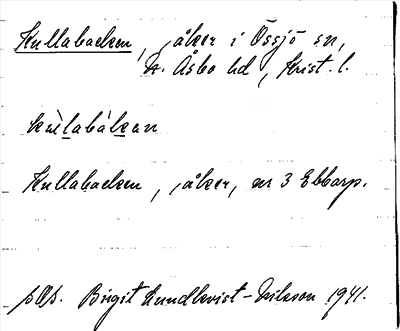 Kullabacken, åker i Össjö sn,
N. Åsbo hd, Krist. l.
kùlabàkan
Kullabacken, åker, nr 3 Ebbarp.
Birgit Lundkvist-Eriksson 1941.